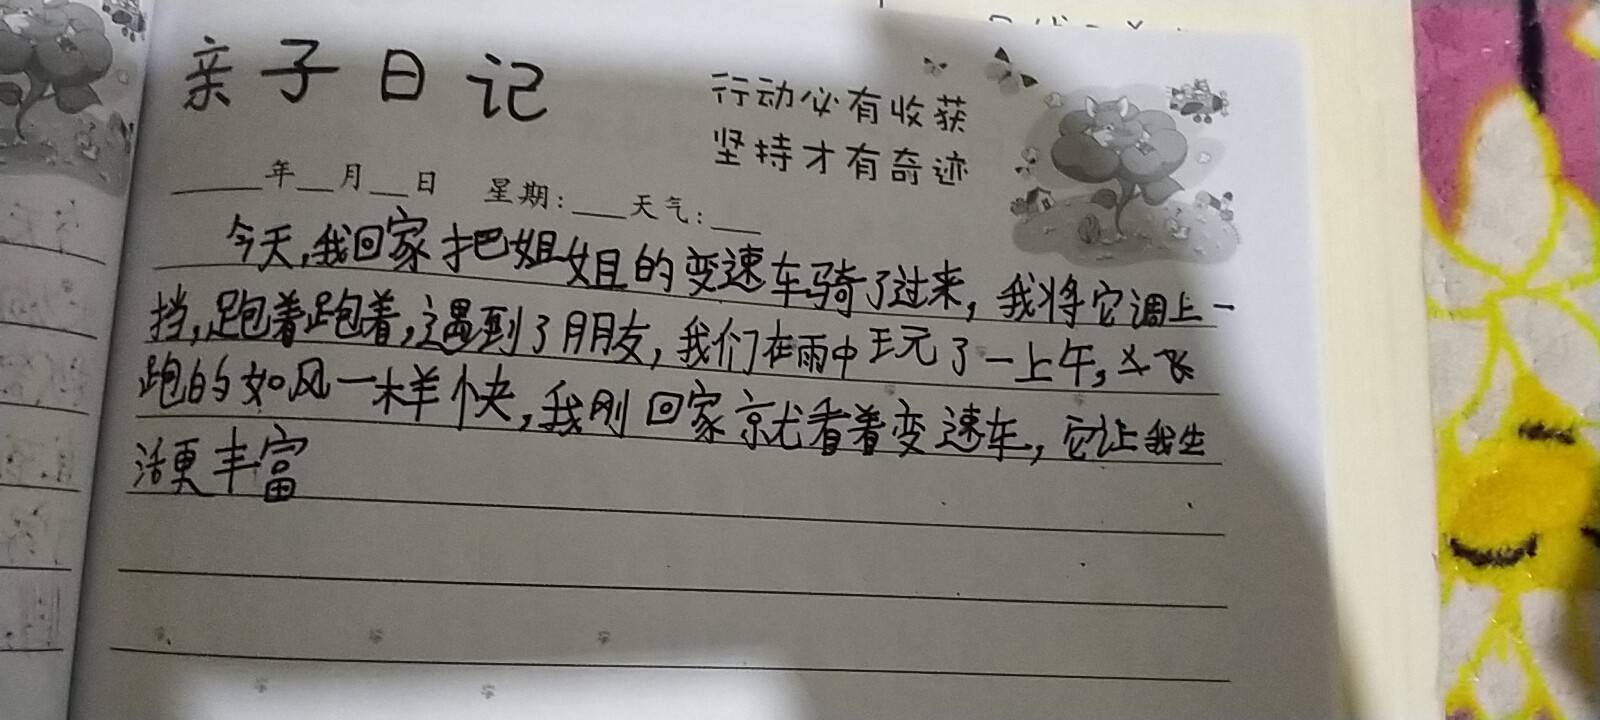 亲子日记
行动必有收获
坚持才有奇迹
年 月 日 星期: 天气:
今天,我回家把姐姐的变速车骑了过来,我将它调上一
挡,跑着跑着,遇到了朋友,我们在雨中玩了一上午,
跑的如风一样快,我刚回家就看着变速车,它让我生
活更丰富